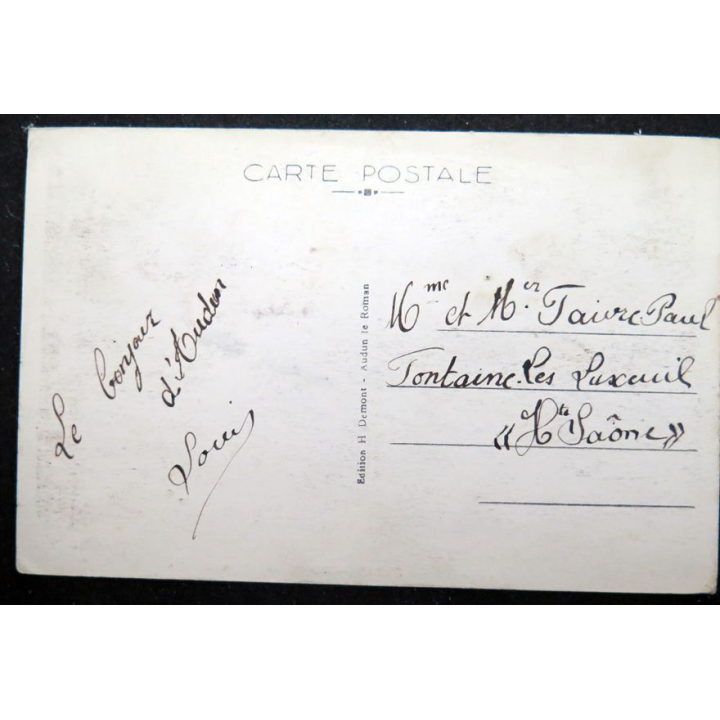 CARTE POSTALE
Le bonjour
d'Audun
Louis
Edition H Demont - Audun le Roman
Mme et Mer Faivre Paul
Fontaine-Les Luxeuil
«Hte Saône»